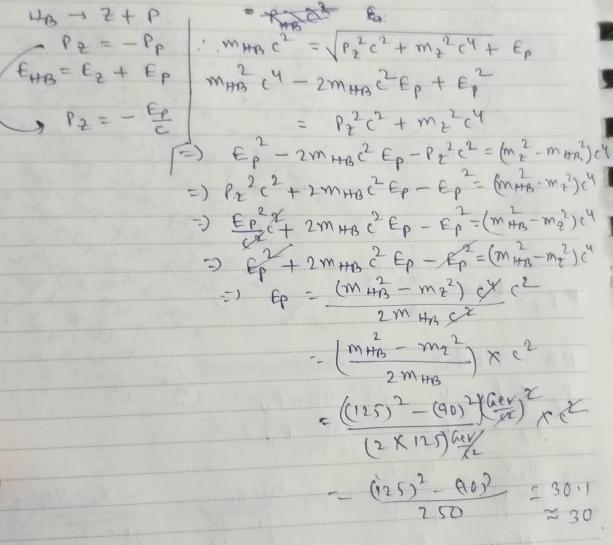 HB → Z + P.
P_Z = - P_P
E_HB = E_Z + E_P
P_Z = - E_P/c
∴ m_HB c² = √(P_Z²c² + m_Z²c⁴) + E_P
m_HB² c⁴ - 2m_HB c² E_P + E_P²
= P_Z²c² + m_Z²c⁴
=> E_P² - 2m_HB c² E_P - P_Z²c² = (m_Z² - m_HB²)c⁴
=> P_Z²c² + 2m_HB c² E_P - E_P² = (m_HB² - m_Z²)c⁴
=> E_P²/c² c² + 2m_HB c² E_P - E_P² = (m_HB² - m_Z²)c⁴
=> E_P² + 2m_HB c² E_P - E_P² = (m_HB² - m_Z²)c⁴
=> E_P = (m_HB² - m_Z²) c⁴ c² / 2m_HB c²
= (m_HB² - m_Z² / 2m_HB) × c²
= ((125)² - (90)²)(GeV/c²)² / (2×125) GeV/c² × c²
= (125)² - (90)² / 250 = 30.1
≈ 30